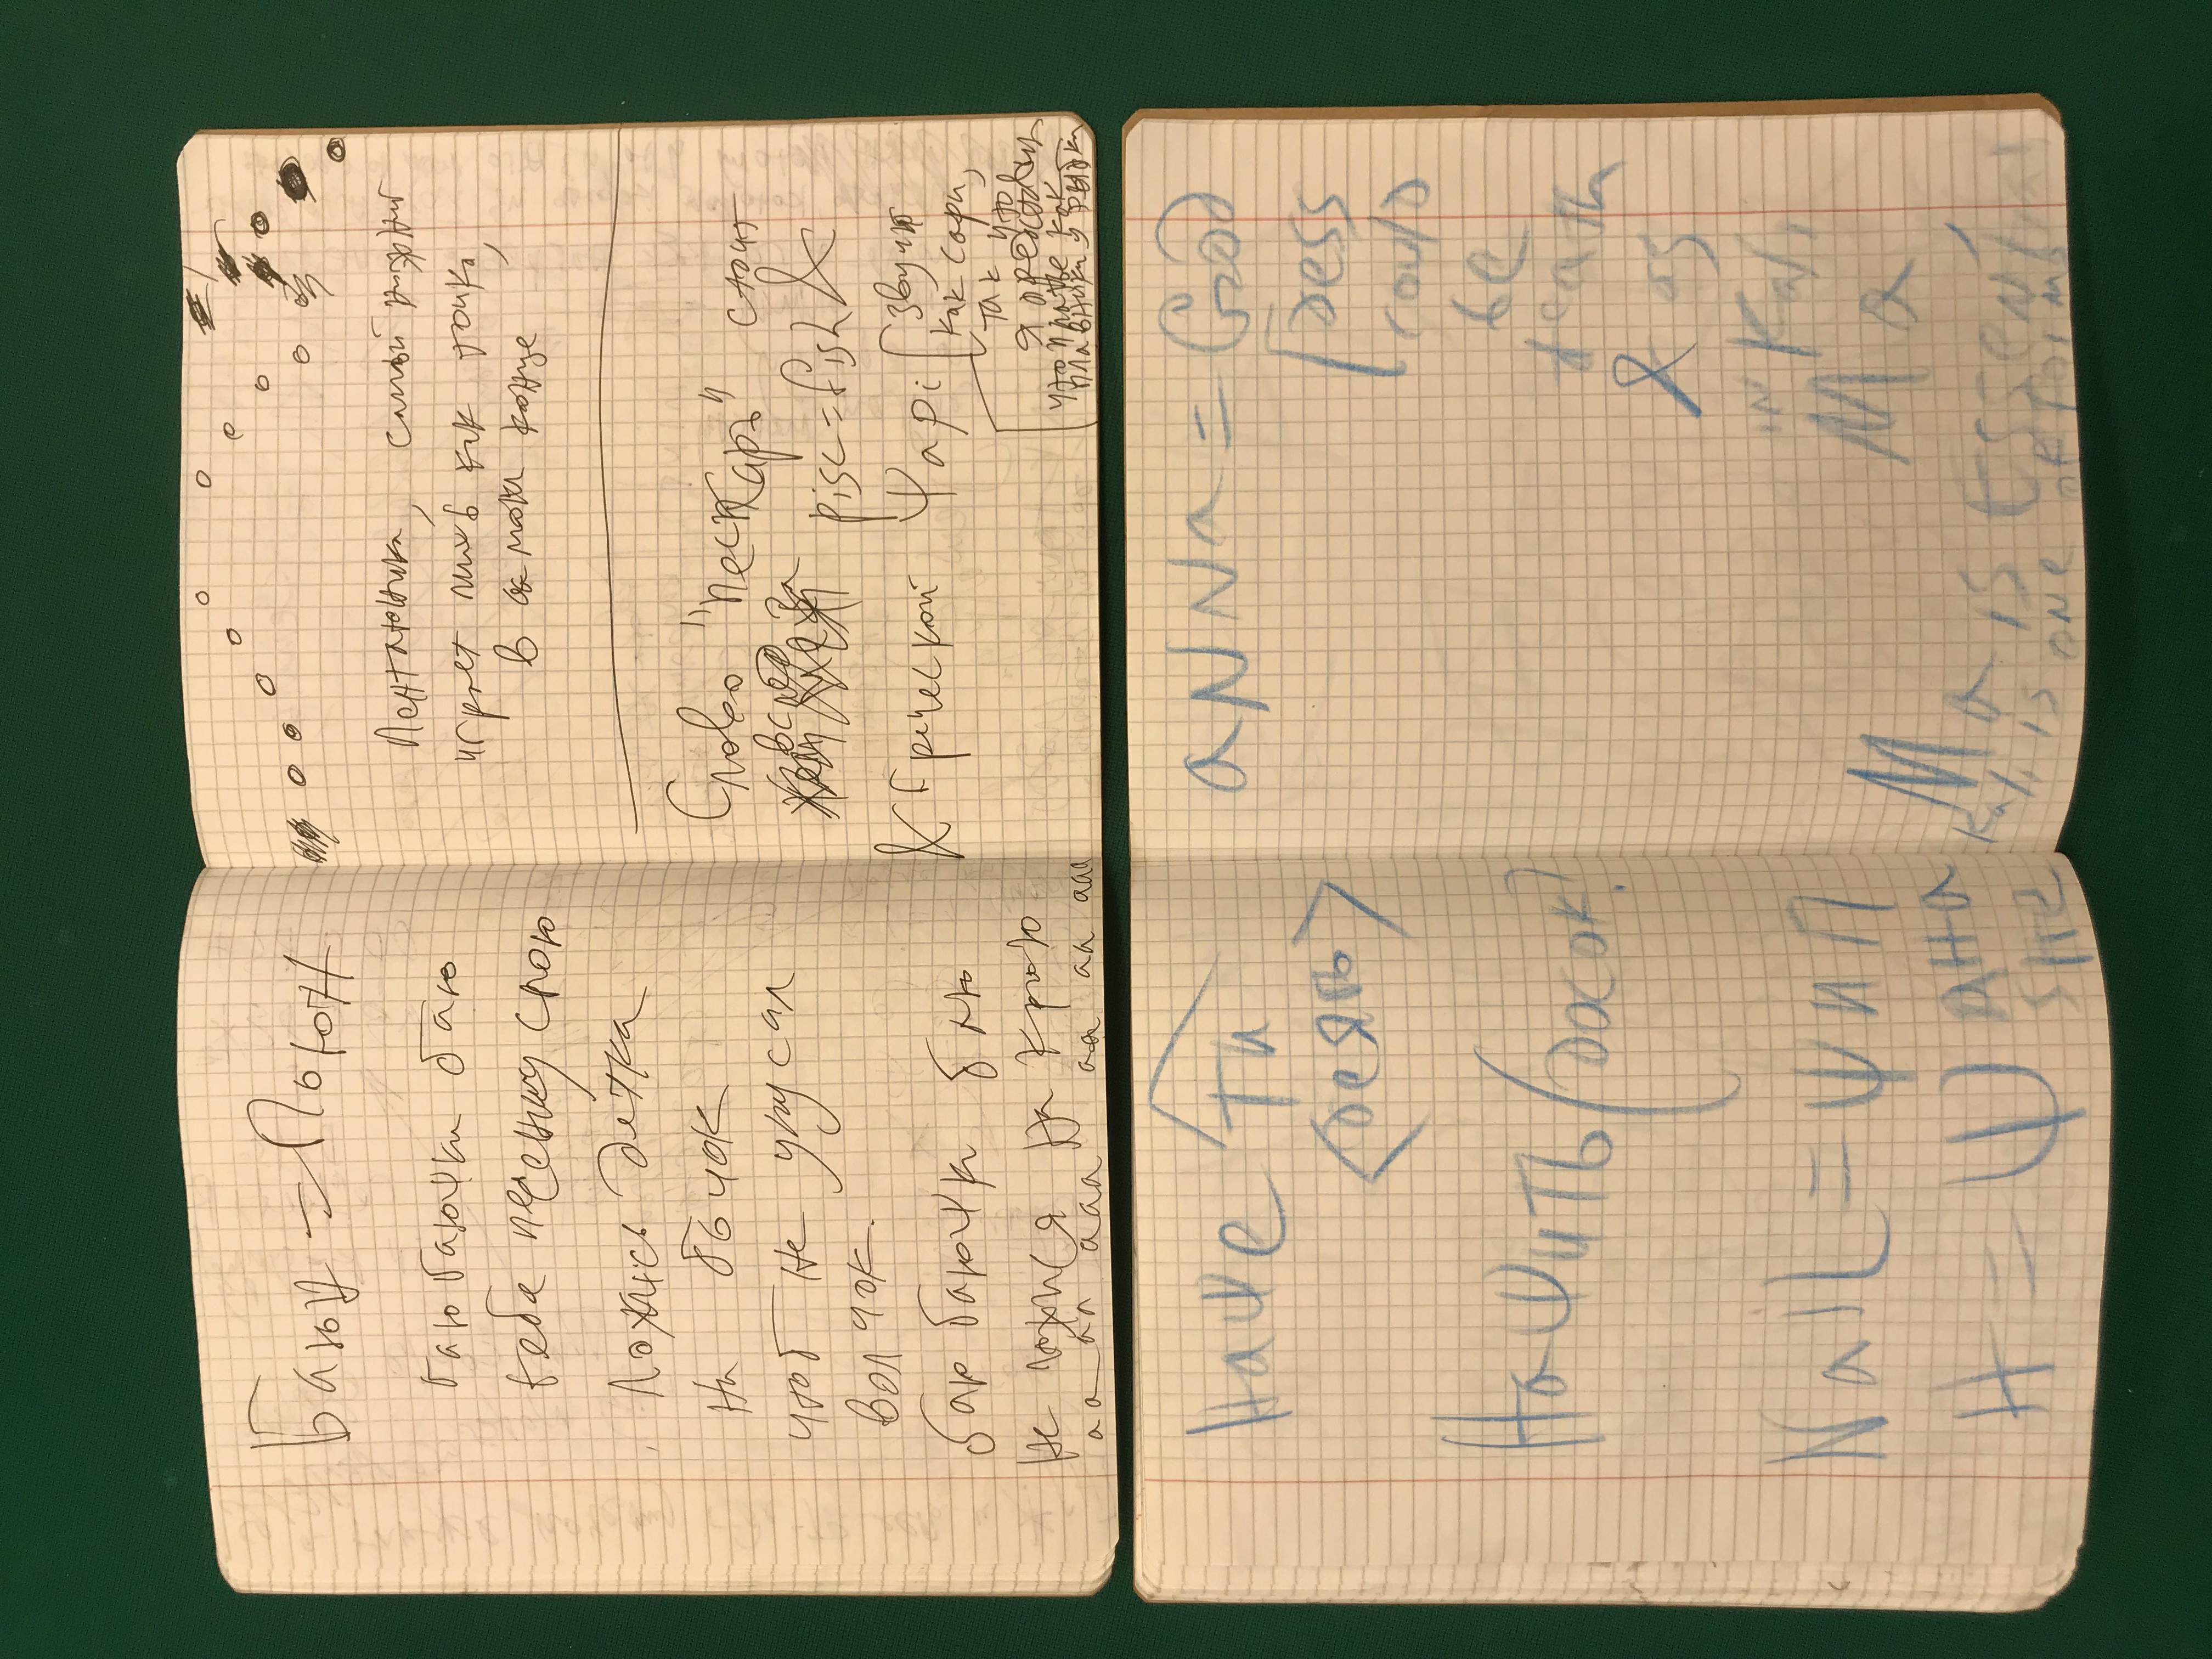 Баюн = Поюн
баю баюψки баю
тебе песенку спою
Ложись детка
на бочок
чтоб не укусал
волчок.
баю баюψки баю
не ложися на краю
аа аа ааа аа аа ааа
Пентатоника, самый нижний
играет лишь как точка,
в самом конце
Слово "пескарь" стоит
вслед за
pisc = fish &
& греческой Ψapi
звучит
как сари,
так что
я представил
что платье как
плавники у рыбки
НаΨе Ти
<деять>
НаΨить (досок?
NaiL = Ψип
Н = Ψ Ана
SHe
aNNa = God
dess
could
be
death
& as
in Kali
Ma
Ma is Essential
Kali is one of forms